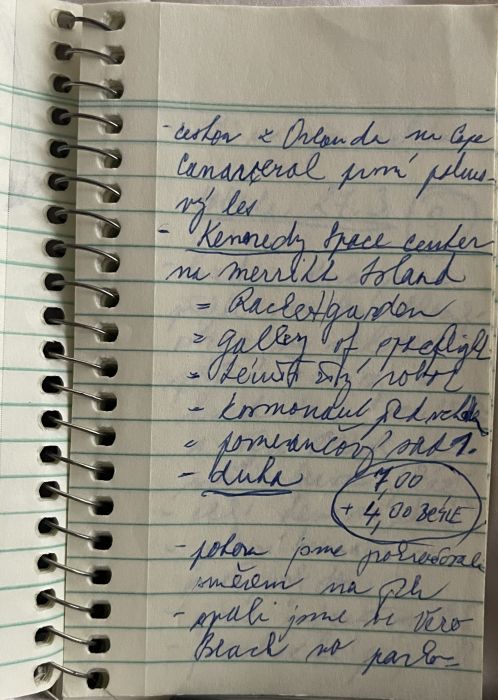 - cestou z Orlanda na Cape
Canaveral první palmo-
vý les
- Kennedy Space center
na Merritt Island
= Rocket garden
= gallery of spaceflight
= řídící robot
- kosmonaut před
= pomerančový sad
- duha
7,00
+ 4,00
- potom jsme pokračovali
směrem na jih
- spali jsme ve Vero
Beach na parko-